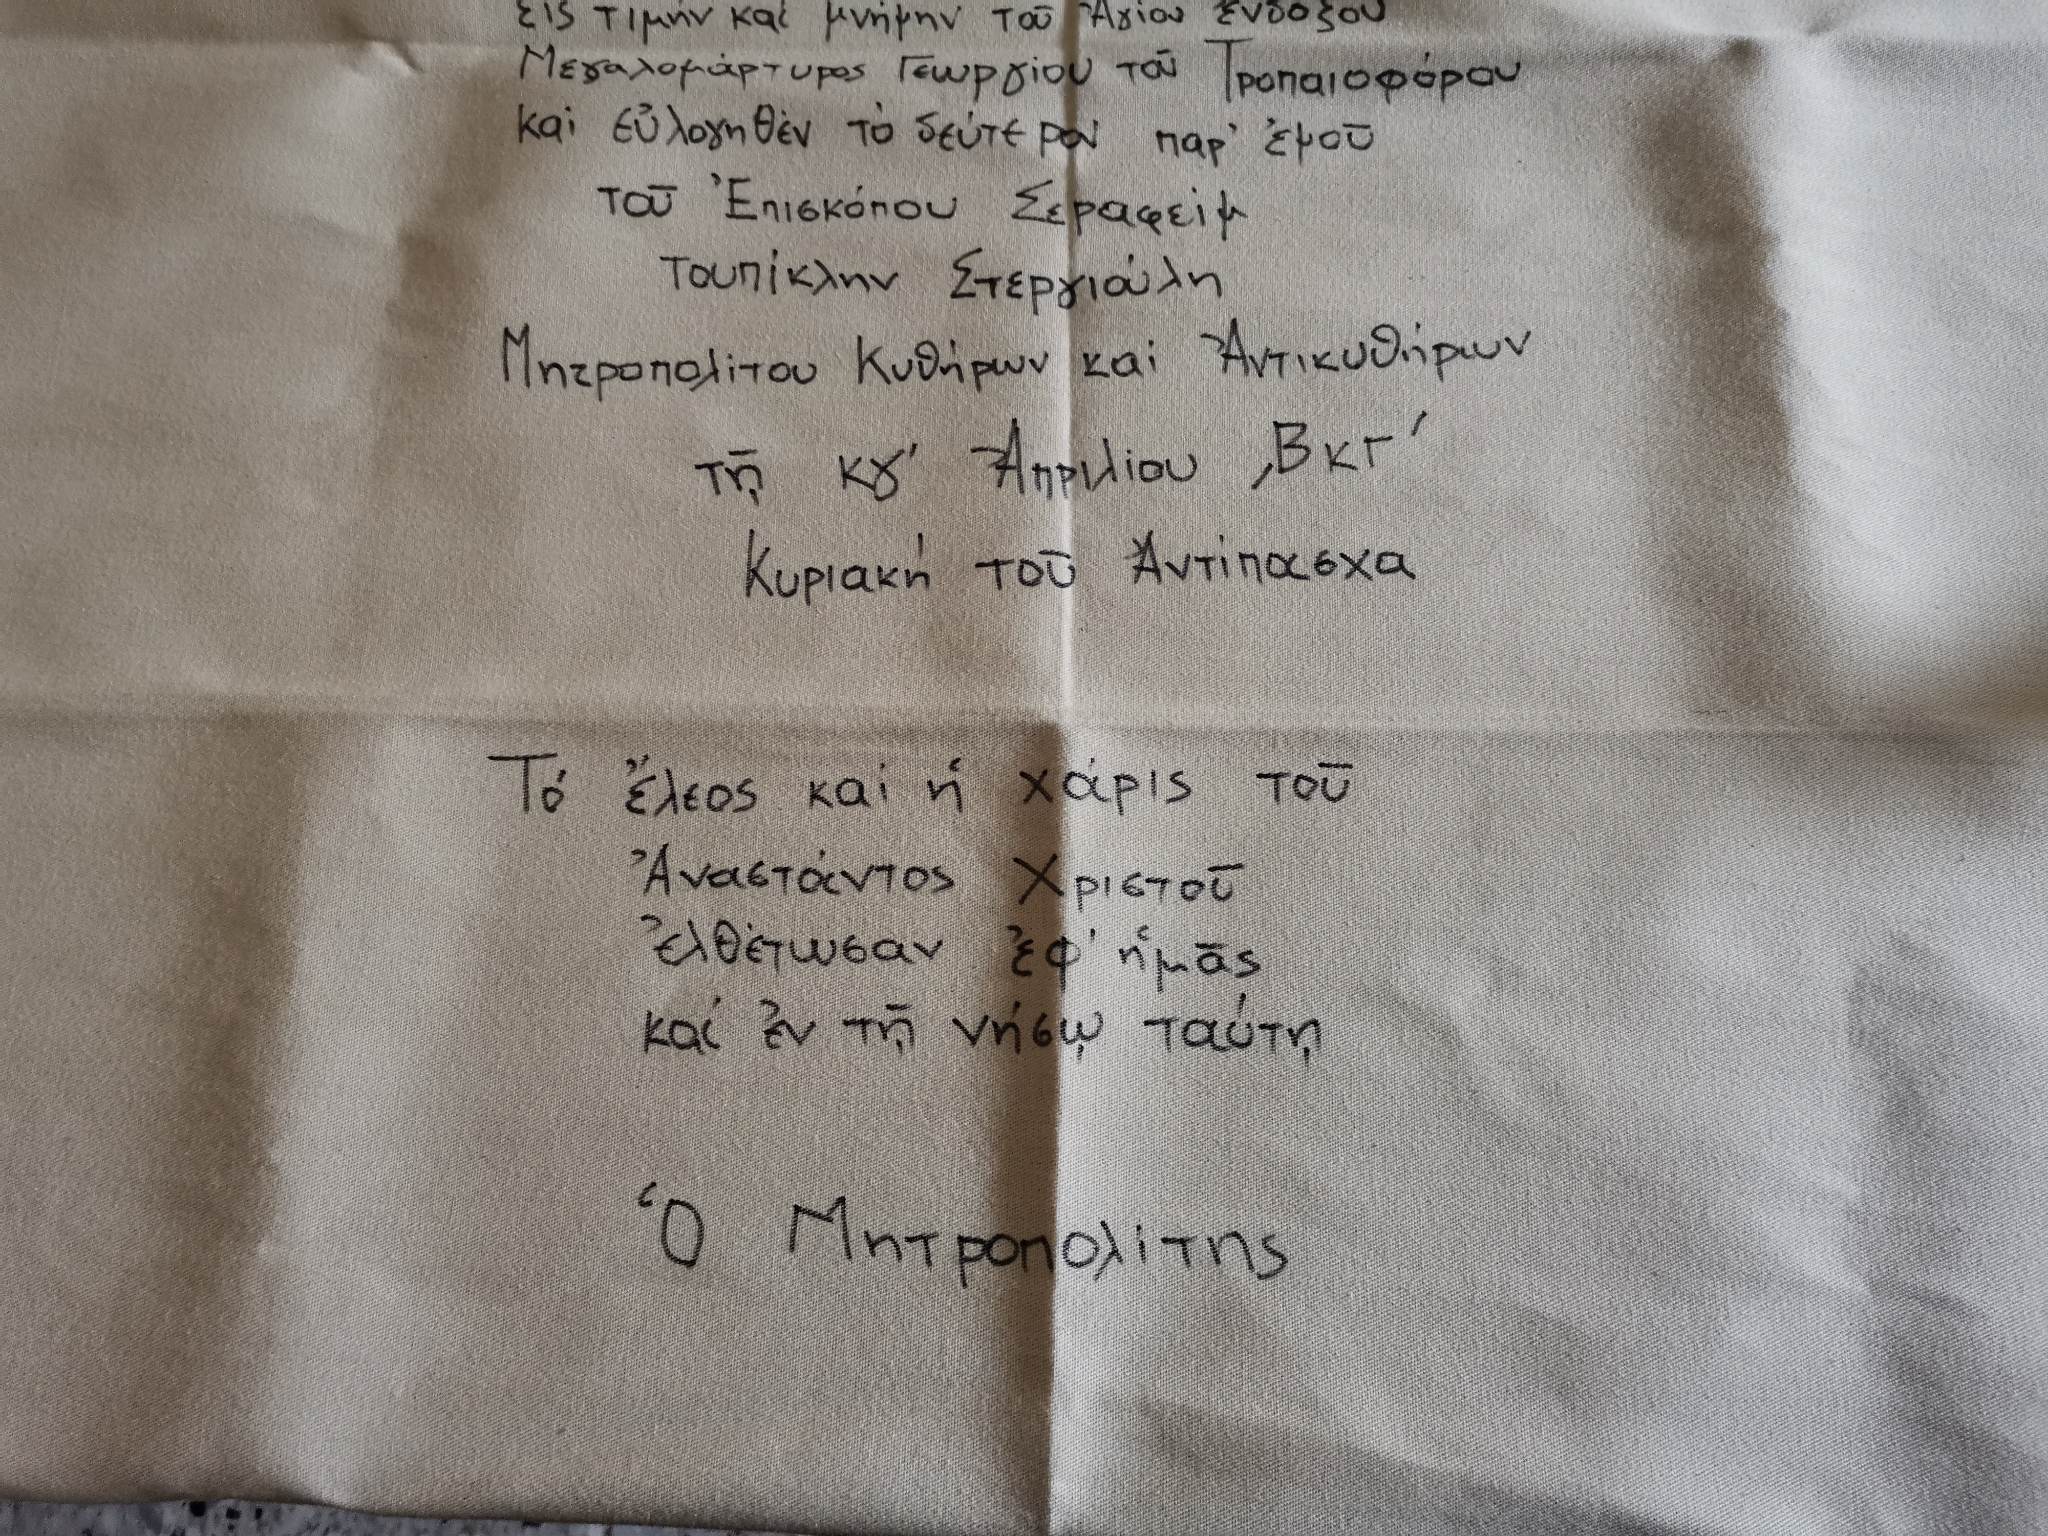 εἰς τιμήν καί μνήμην τοῦ Ἁγίου ἐνδόξου
Μεγαλομάρτυρος Γεωργίου τοῦ Τροπαιοφόρου
καί εὐλογηθέν τό δεύτερον παρ' ἐμοῦ
τοῦ Ἐπισκόπου Σεραφείμ
τουπίκλην Στεργιούλη
Μητροπολίτου Κυθήρων καί Ἀντικυθήρων
τῇ κγ' Ἀπριλίου ,ΒκΓ'
Κυριακή τοῦ Ἀντίπασχα
Τό ἔλεος καί ἡ χάρις τοῦ
Ἀναστάντος Χριστοῦ
ἐλθέτωσαν ἐφ' ἡμᾶς
καί ἐν τῇ νήσῳ ταύτῃ
Ὁ Μητροπολίτης